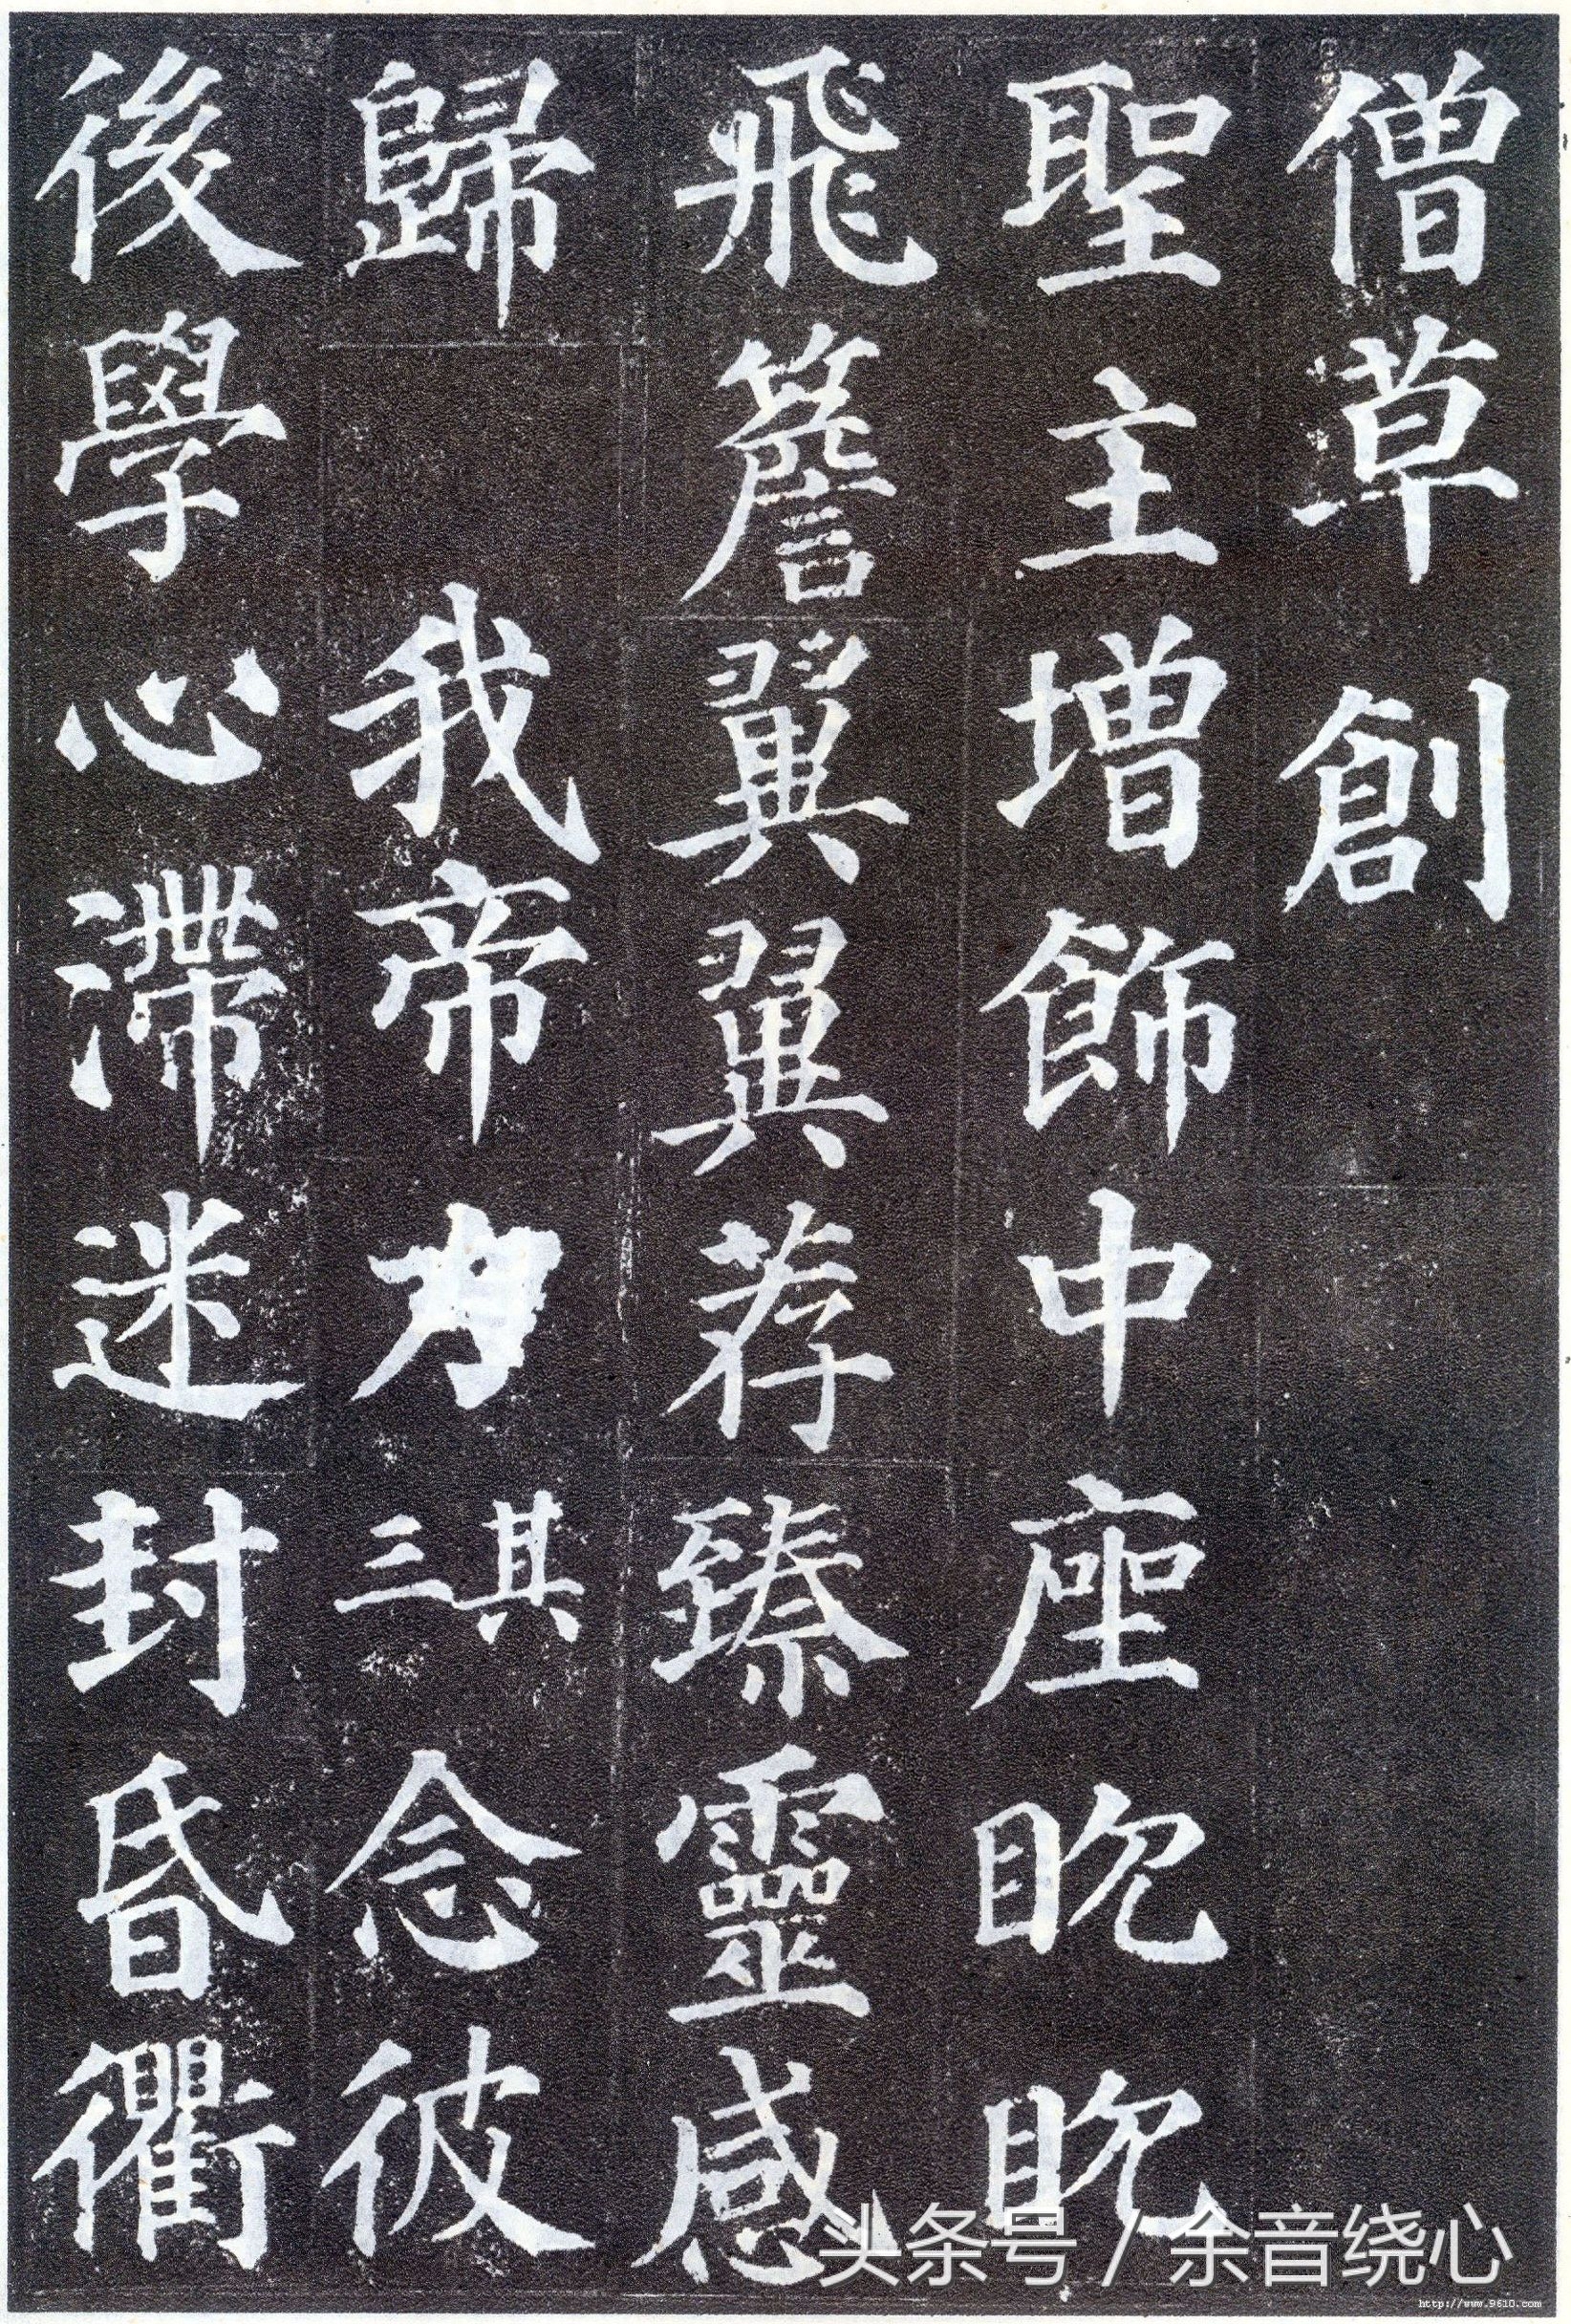 僧草創
聖主增飾中座眈眈
飛簷翼翼荐臻靈感
歸我帝力其三念彼
後學心滯迷封昏衢
头条号 / 余音绕心
http://www.9610.com